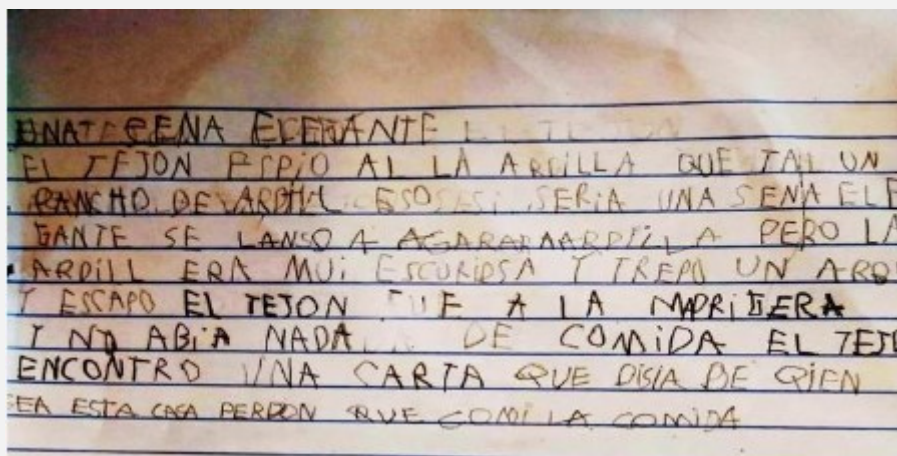 UNA SENA ELEGANTE
EL TEJON ESPIO AL LA ARDILLA QUE TAL UN
RANCHO DE ARDILL ESO SESI SERIA UNA SENA ELE
GANTE SE LANSO A AGARAR PERO LA
ARDILL ERA MUI ESCURIDSA Y TREPO UN ARB
Y ESCAPO EL TEJON FUE A LA MADRIGERA
Y NO ABIA NADA DE COMIDA EL TEJO
ENCONTRO UNA CARTA QUE DISIA DE QIEN
SEA ESTA CASA PERDON QUE COMI LA COMIDA